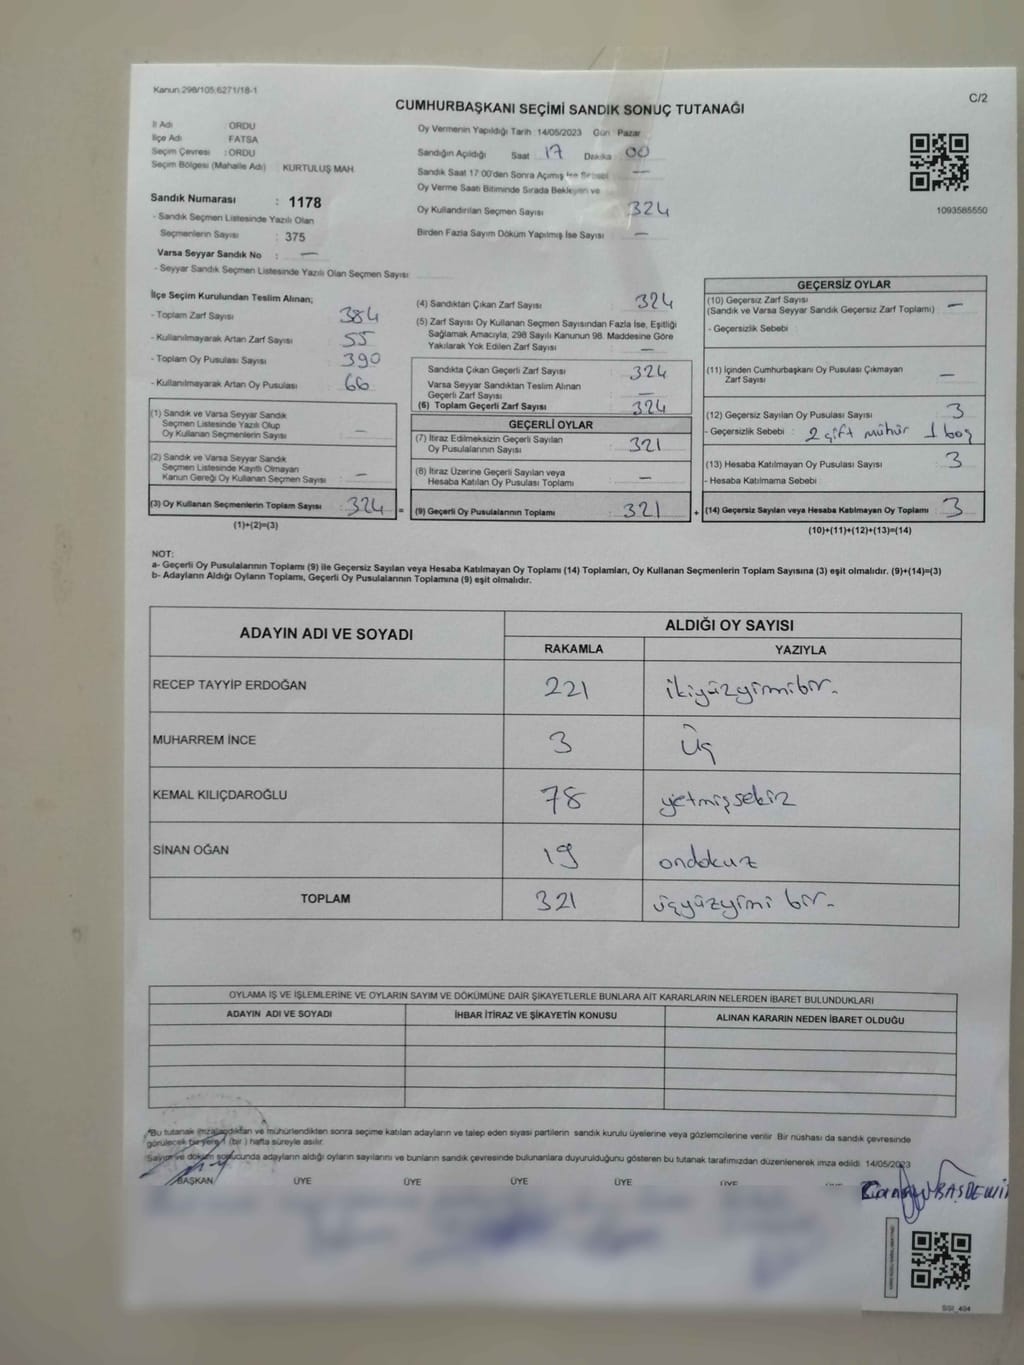 Kanun 298/105,6271/18-1
C/2
CUMHURBAŞKANI SEÇİMİ SANDIK SONUÇ TUTANAĞI
İl Adı ORDU
İlçe Adı FATSA
Seçim Çevresi : ORDU
Seçim Bölgesi (Mahalle Adı) KURTULUŞ MAH.
Sandık Numarası : 1178
- Sandık Seçmen Listesinde Yazılı Olan
Seçmenlerin Sayısı : 375
Varsa Seyyar Sandık No : —
- Seyyar Sandık Seçmen Listesinde Yazılı Olan Seçmen Sayısı
Oy Vermenin Yapıldığı Tarih 14/05/2023 Gün Pazar
Sandığın Açıldığı Saat 17 Dakika 00
Sandık Saat 17:00'den Sonra Açılmış İse Sebebi —
Oy Verme Saati Bitiminde Sırada Bekleyen ve
Oy Kullandırılan Seçmen Sayısı 324
Birden Fazla Sayım Döküm Yapılmış İse Sayısı —
1093585550
İlçe Seçim Kurulundan Teslim Alınan;
- Toplam Zarf Sayısı 384
- Kullanılmayarak Artan Zarf Sayısı 55
- Toplam Oy Pusulası Sayısı 390
- Kullanılmayarak Artan Oy Pusulası 66
(1) Sandık ve Varsa Seyyar Sandık
Seçmen Listesinde Yazılı Olup
Oy Kullanan Seçmenlerin Sayısı —
(2) Sandık ve Varsa Seyyar Sandık
Seçmen Listesinde Kayıtlı Olmayan
Kanun Gereği Oy Kullanan Seçmen Sayısı —
(3) Oy Kullanan Seçmenlerin Toplam Sayısı : 324 =
(1)+(2)=(3)
(4) Sandıktan Çıkan Zarf Sayısı 324
(5) Zarf Sayısı Oy Kullanan Seçmen Sayısından Fazla İse, Eşitliği
Sağlamak Amacıyla, 298 Sayılı Kanunun 98. Maddesine Göre
Yakılarak Yok Edilen Zarf Sayısı —
Sandıkta Çıkan Geçerli Zarf Sayısı 324
Varsa Seyyar Sandıktan Teslim Alınan
Geçerli Zarf Sayısı —
(6) Toplam Geçerli Zarf Sayısı 324
GEÇERLİ OYLAR
(7) İtiraz Edilmeksizin Geçerli Sayılan
Oy Pusulalarının Sayısı 321
(8) İtiraz Üzerine Geçerli Sayılan veya
Hesaba Katılan Oy Pusulası Toplamı —
(9) Geçerli Oy Pusulalarının Toplamı 321 +
GEÇERSİZ OYLAR
(10) Geçersiz Zarf Sayısı
(Sandık ve Varsa Seyyar Sandık Geçersiz Zarf Toplamı) —
- Geçersizlik Sebebi
(11) İçinden Cumhurbaşkanı Oy Pusulası Çıkmayan
Zarf Sayısı —
(12) Geçersiz Sayılan Oy Pusulası Sayısı 3
- Geçersizlik Sebebi : 2 çift mühür 1 boş
(13) Hesaba Katılmayan Oy Pusulası Sayısı 3
- Hesaba Katılmama Sebebi
(14) Geçersiz Sayılan veya Hesaba Katılmayan Oy Toplamı : 3
(10)+(11)+(12)+(13)=(14)
NOT:
a- Geçerli Oy Pusulalarının Toplamı (9) ile Geçersiz Sayılan veya Hesaba Katılmayan Oy Toplamı (14) Toplamları, Oy Kullanan Seçmenlerin Toplam Sayısına (3) eşit olmalıdır. (9)+(14)=(3)
b- Adayların Aldığı Oyların Toplamı, Geçerli Oy Pusulalarının Toplamına (9) eşit olmalıdır.
ADAYIN ADI VE SOYADI ALDIĞI OY SAYISI
RAKAMLA YAZIYLA
RECEP TAYYİP ERDOĞAN 221 ikiyüzyirmibir.
MUHARREM İNCE 3 üç
KEMAL KILIÇDAROĞLU 78 yetmişsekiz
SİNAN OĞAN 19 ondokuz
TOPLAM 321 üçyüzyimi bir.
OYLAMA İŞ VE İŞLEMLERİNE VE OYLARIN SAYIM VE DÖKÜMÜNE DAİR ŞİKAYETLERLE BUNLARA AİT KARARLARIN NELERDEN İBARET BULUNDUKLARI
ADAYIN ADI VE SOYADI İHBAR İTİRAZ VE ŞİKAYETİN KONUSU ALINAN KARARIN NEDEN İBARET OLDUĞU
*Bu tutanak imzalandıktan ve mühürlendikten sonra seçime katılan adayların ve talep eden siyasi partilerin sandık kurulu üyelerine veya gözlemcilerine verilir. Bir nüshası da sandık çevresinde
görülecek bir yere 1 (bir) hafta süreyle asılır.
Sayım ve döküm sonucunda adayların aldığı oyların sayılarını ve bunların sandık çevresinde bulunanlara duyurulduğunu gösteren bu tutanak tarafımızdan düzenlenerek imza edildi. 14/05/2023
BAŞKAN ÜYE ÜYE ÜYE ÜYE ÜYE
BAŞDEMİR
SSI_494